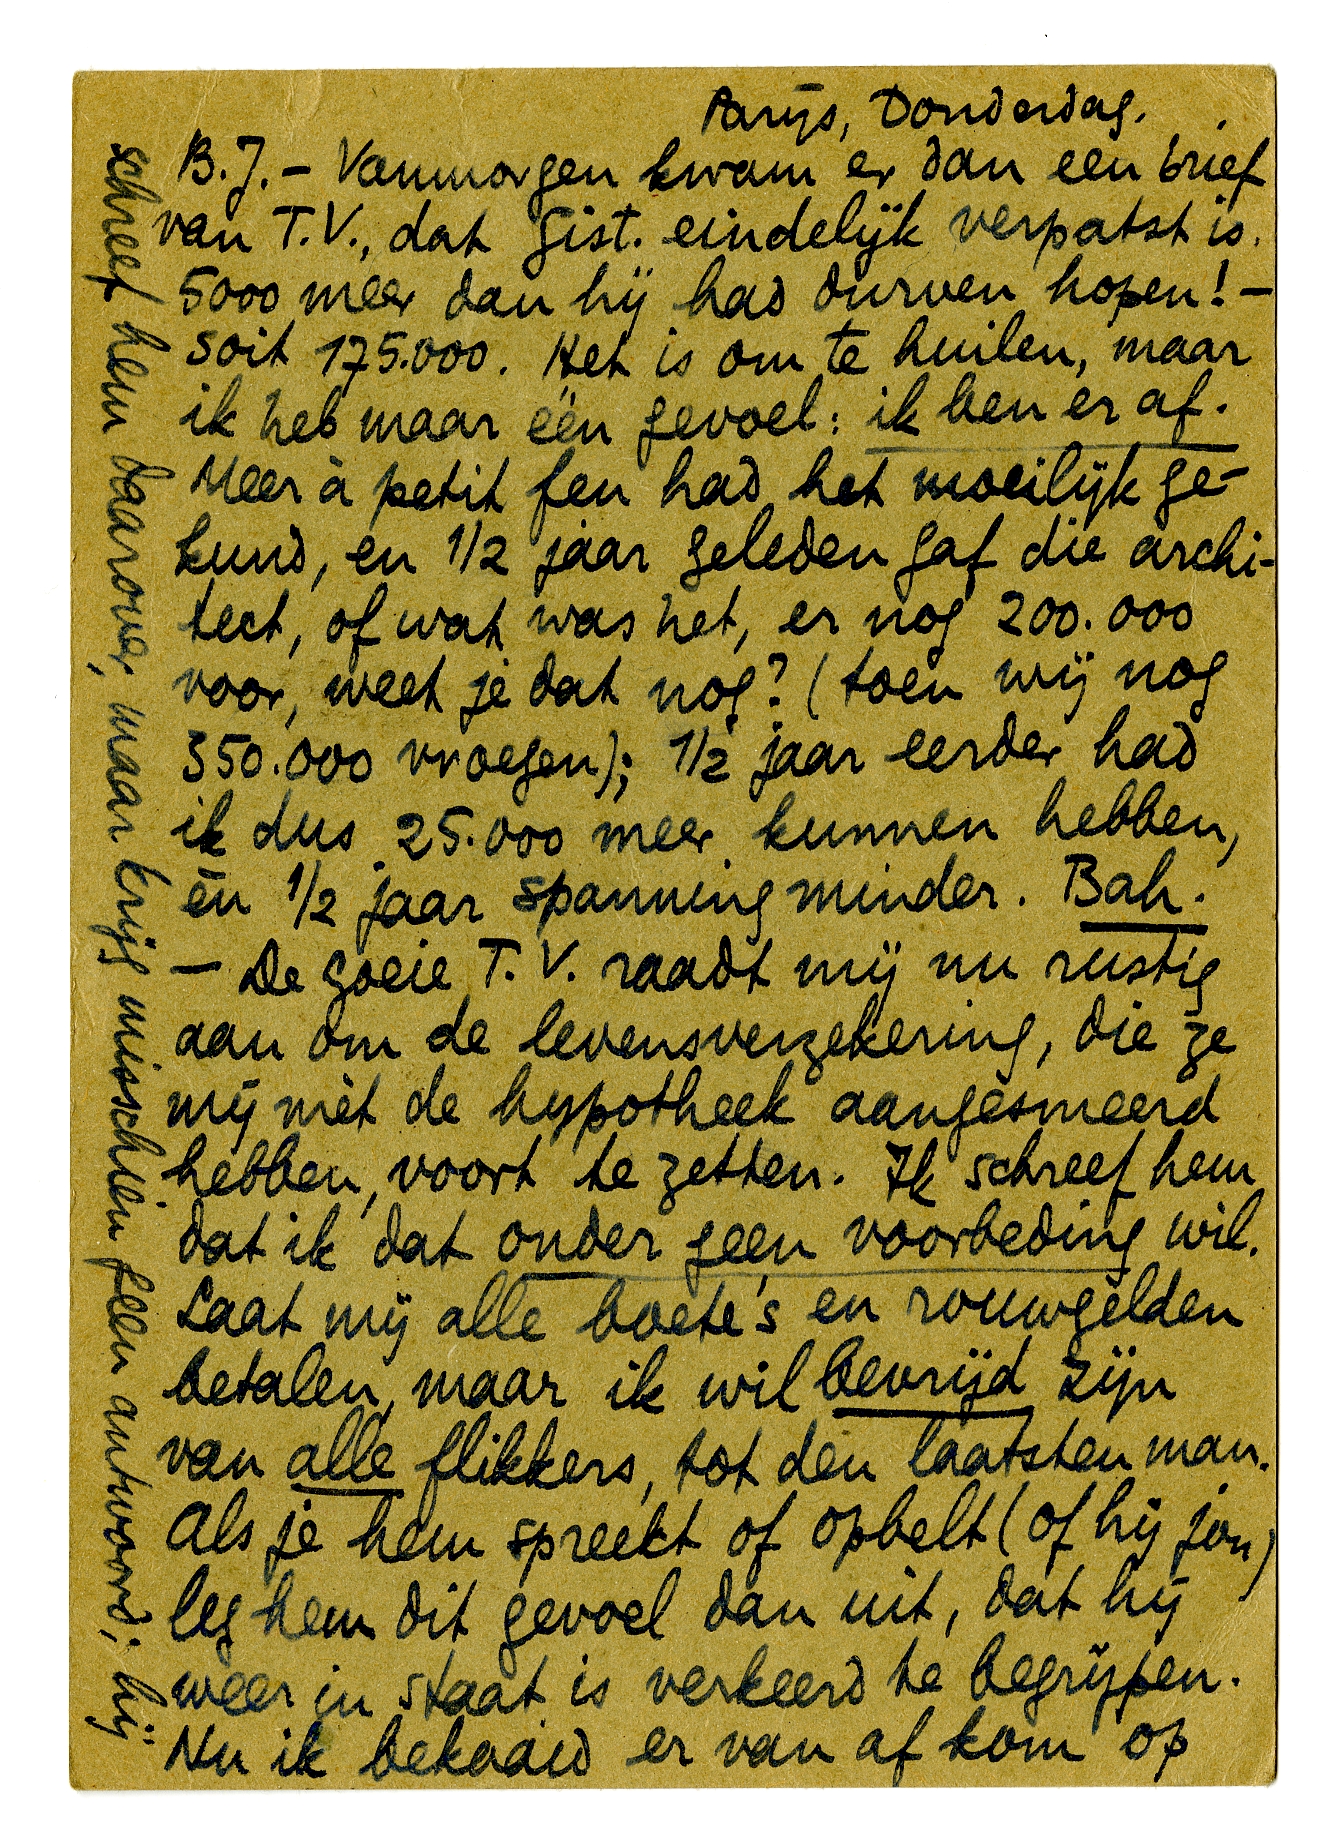 Parijs, Donderdag.
B.J. – Vanmorgen kwam er dan een brief
van T.V., dat Gist. eindelijk verpatst is.
5000 meer dan hij had durven hopen! –
soit 175.000. Het is om te huilen, maar
ik heb maar één gevoel: ik ben er af.
Meer à petit feu had het moeilijk ge-
kund, en 1/2 jaar geleden gaf die archi-
tect, of wat was het, er nog 200.000
voor, weet je dat nog? (toen wij nog
350.000 vroegen); 1/2 jaar eerder had
ik dus 25.000 meer kunnen hebben,
èn 1/2 jaar spanning minder. Bah.
– De goeie T.V. raadt mij nu rustig
aan om de levensverzekering, die ze
mij mèt de hypotheek aangesmeerd
hebben, voort te zetten. Ik schreef hem
dat ik dat onder geen voorbeding wil.
Laat mij alle boete's en rouwgelden
betalen, maar ik wil bevrijd zijn
van alle flikkers, tot den laatsten man.
Als je hem spreekt of opbelt (of hij jou)
leg hem dit gevoel dan uit, dat hij
weer in staat is verkeerd te begrijpen.
Nu ik bekaaid er van af kom op
schreef hem daarover, maar krijg misschien geen antwoord; hij